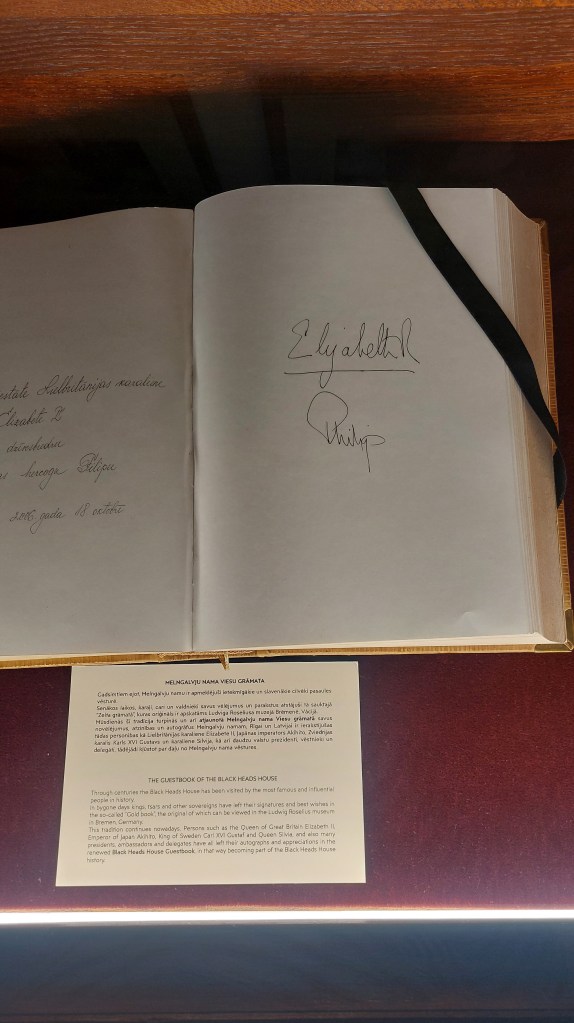 Lielbritānijas karaliene
Elizabete II
hercogs Filips
2006. gada 18. oktobrī
Elizabeth R
Philip
MELNGALVJU NAMA VIESU GRĀMATA
Gadsimtiem ejot, Melngalvju namu ir apmeklējuši ietekmīgākie un slavenākie cilvēki pasaules
vēsturē.
Senākos laikos, karaļi, cari un valdnieki savus vēlējumus un parakstus atstājuši tā sauktajā
"Zelta grāmatā", kuras oriģināls ir apskatāms Ludviga Roseliusa muzejā Brēmenē, Vācijā.
Mūsdienās šī tradīcija turpinās un arī atjaunotā Melngalvju nama Viesu grāmatā savus
novēlējumus, atzinības un autogrāfus Melngalvju namam, Rīgai un Latvijai ir ierakstījušas
tādas personības kā Lielbritānijas karaliene Elizabete II, Japānas imperators Akihito, Zviedrijas
karalis Karls XVI Gustavs un karaliene Silvija, kā arī daudzu valstu prezidenti, vēstnieki un
delegāti, tādējādi kļūstot par daļu no Melngalvju nama vēstures.
THE GUESTBOOK OF THE BLACK HEADS HOUSE
Through centuries the Black Heads House has been visited by the most famous and influential
people in history.
In bygone days kings, tsars and other sovereigns have left their signatures and best wishes in
the so-called "Gold book", the original of which can be viewed in the Ludwig Roselius museum
in Bremen, Germany.
This tradition continues nowadays. Persons such as the Queen of Great Britain Elizabeth II,
Emperor of Japan Akihito, King of Sweden Carl XVI Gustaf and Queen Silvia, and also many
presidents, ambassadors and delegates have all left their autographs and appreciations in the
renewed Black Heads House Guestbook, in that way becoming part of the Black Heads House
history.